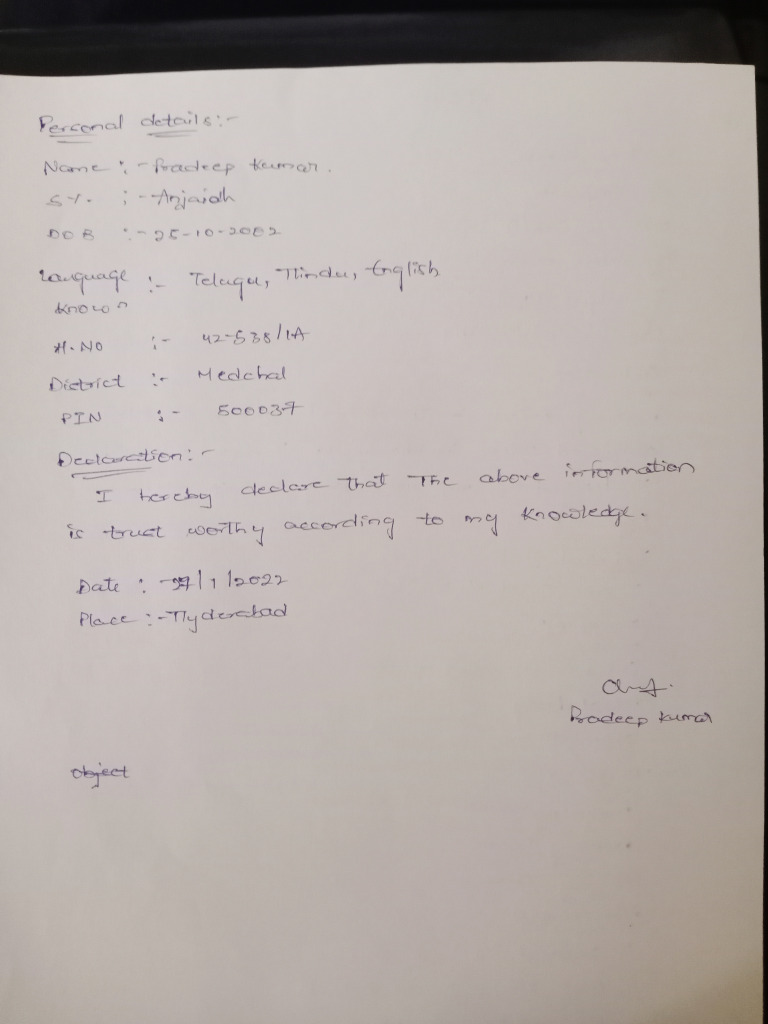 Personal details:-
Name :- Pradeep Kumar.
S/. :- Anjaiah
DOB :- 25-10-2002
Language :- Telugu, Hindu, English
Known
H.NO :- 42-538/1A
District :- Medchal
PIN :- 500037
Declaration:-
I hereby declare that The above information
is trust worthy according to my knowledge.
Date : - /1/2022
Place :- Hyderabad
Pradeep Kumar
object